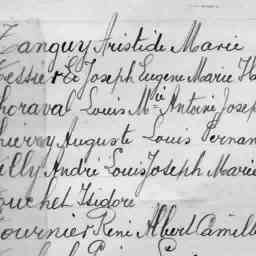 Tanguy Aristide Marie
Tessier Joseph Eugène Marie
Louis Mie Antoine Josep
Auguste Louis Fernan
illy André Louis Joseph Marie
ouchet Isidore
ournier René Albert Camille